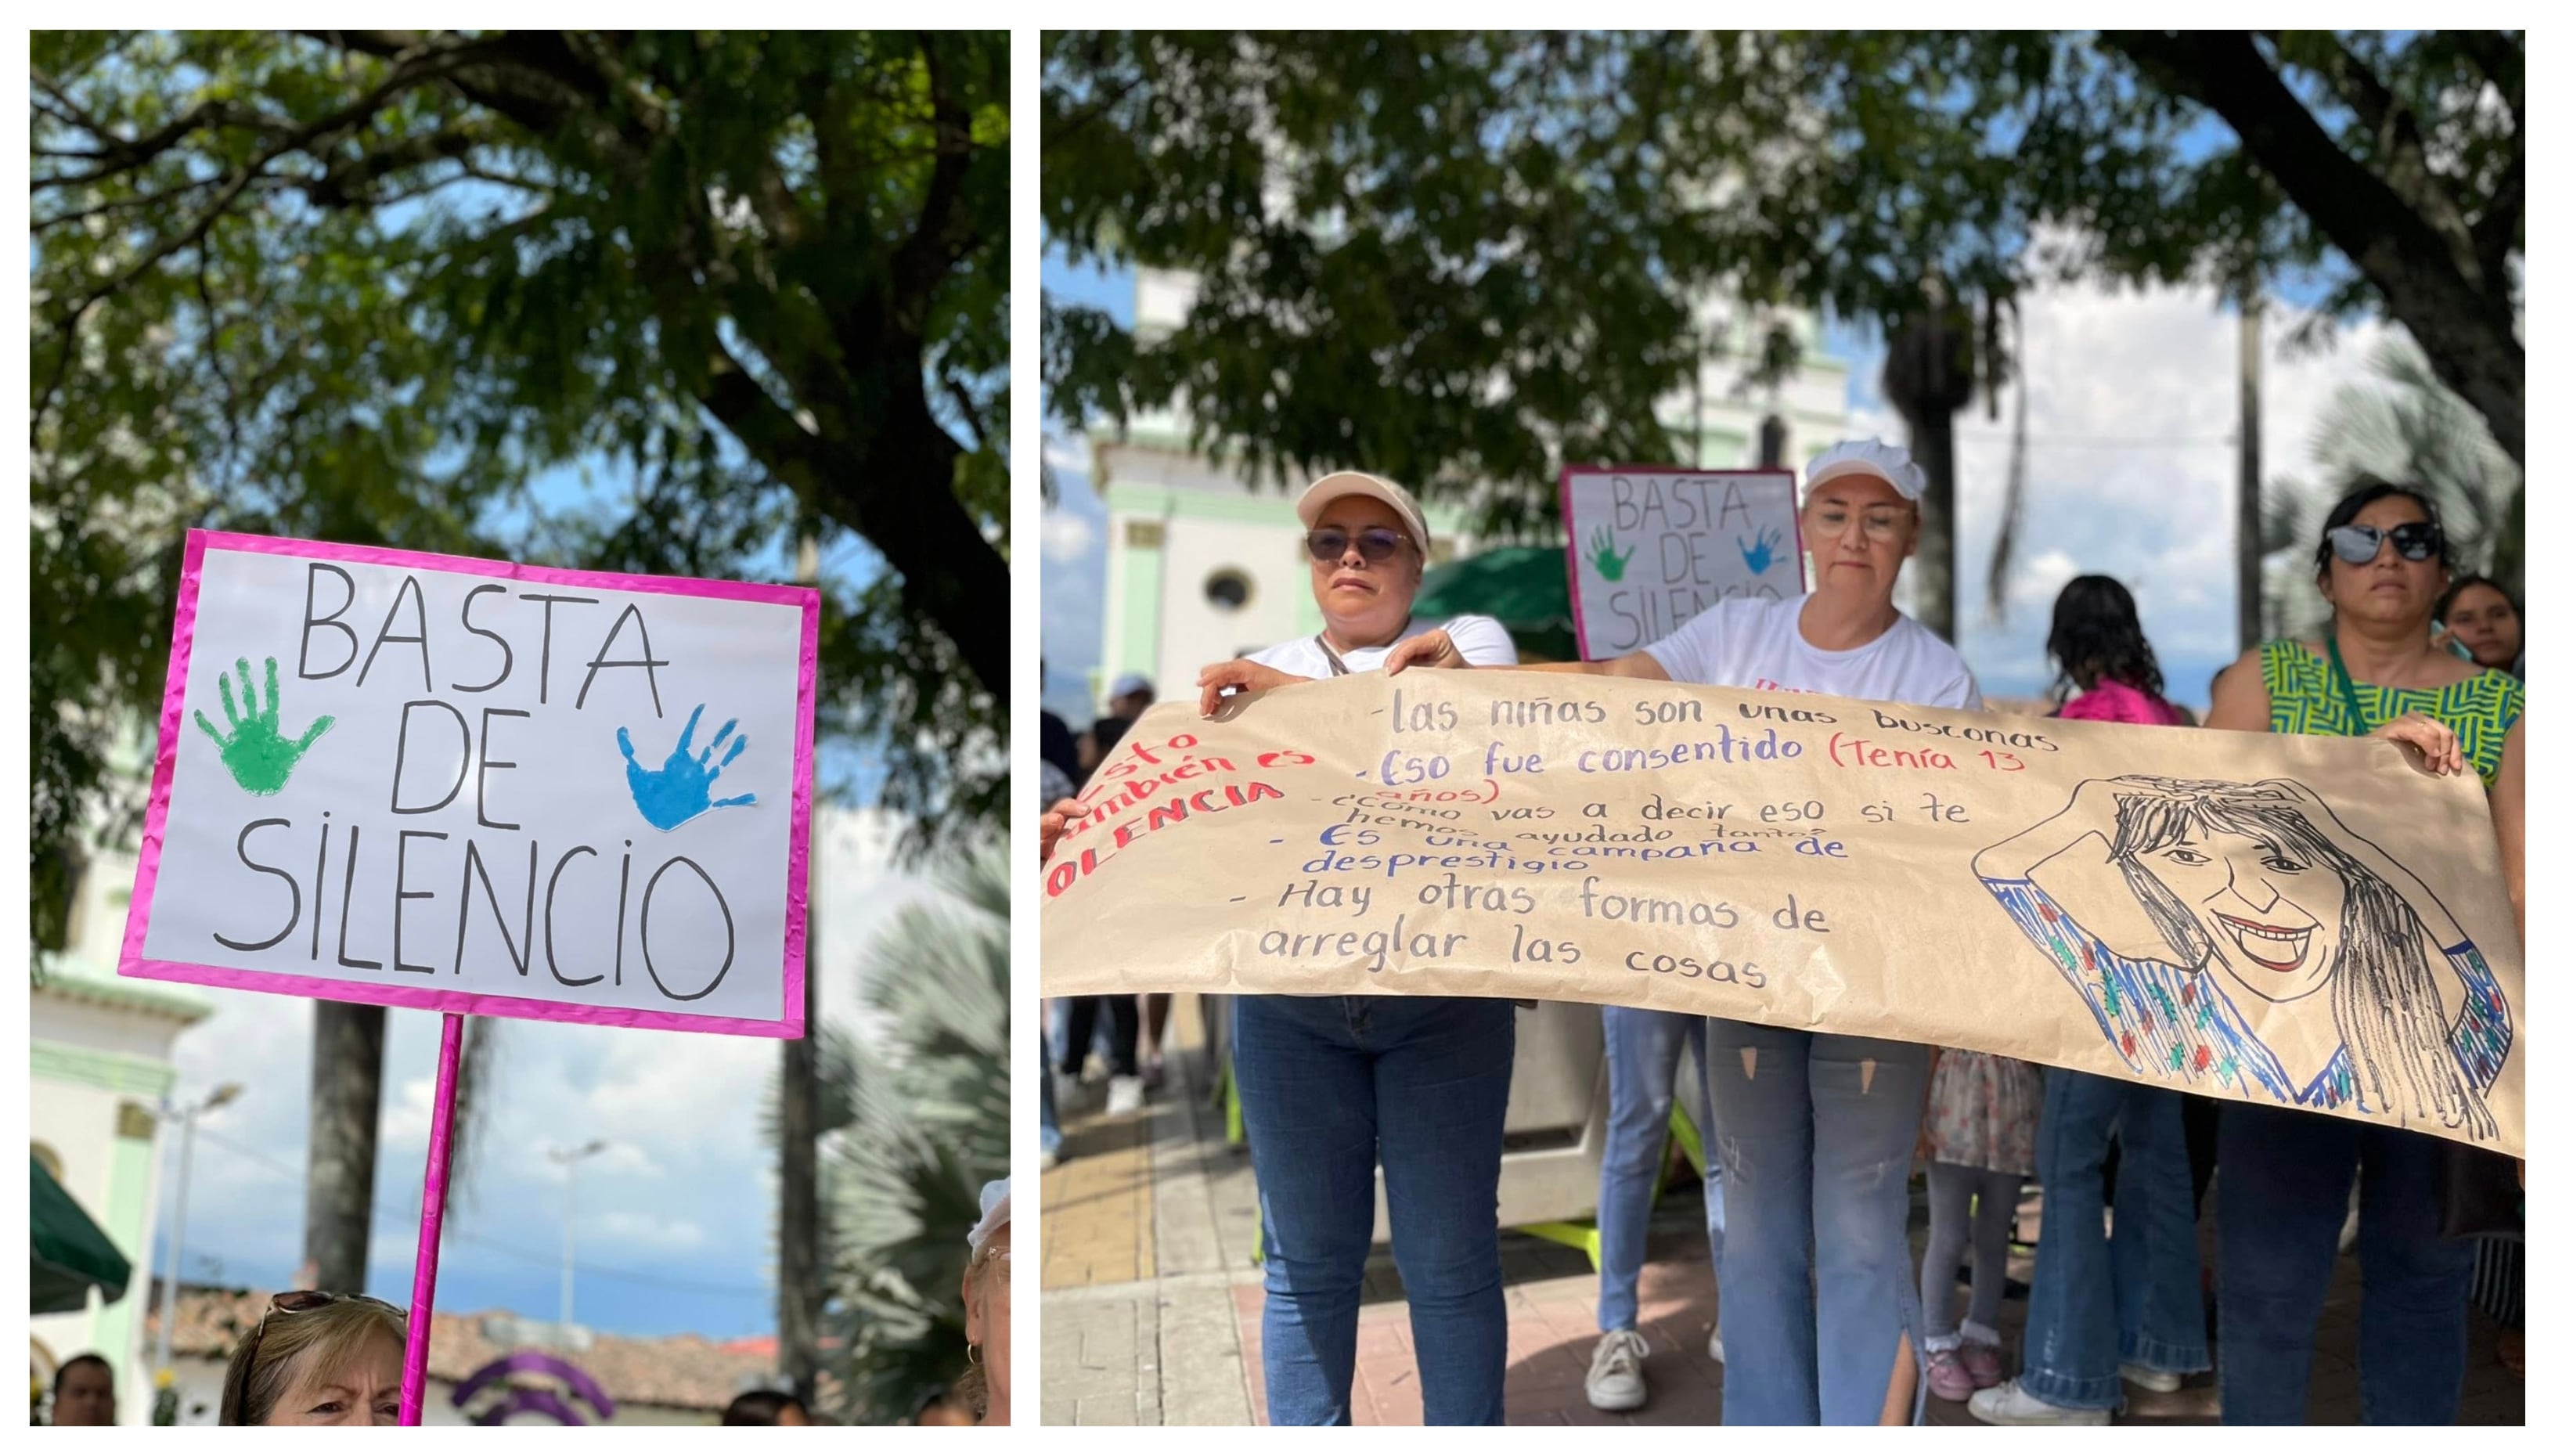 BASTA
DE
SILENCIO
BASTA
DE
SILENCIO
también es
- las niñas son unas busconas
- Eso fue consentido (Tenía 13
años)
- ¿cómo vas a decir eso si te
hemos ayudado tanto?
- Es una campaña de
desprestigio
- Hay otras formas de
arreglar las cosas